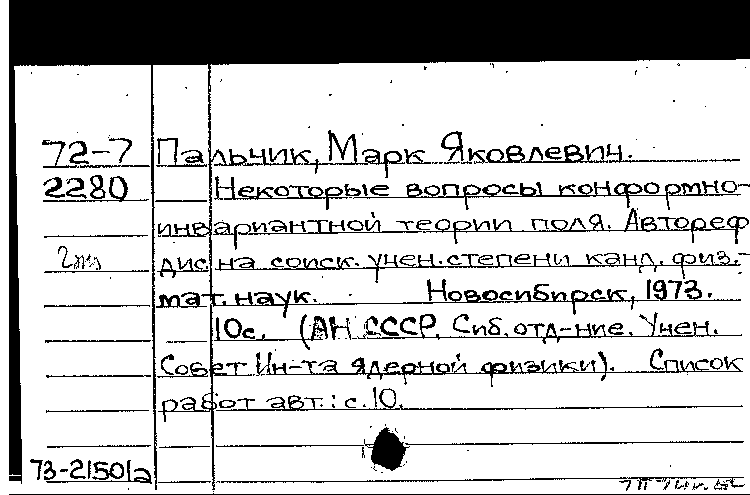 72-7 Пальчик, Марк Яковлевич.
2280 Некоторые вопросы конформно-
инвариантной теории поля. Автореф
дис. на соиск. учен. степени канд. физ.-
мат. наук. Новосибирск, 1973.
10с. (АН СССР. Сиб. отд-ние. Учен.
Совет Ин-та ядерной физики). Список
работ авт.: с. 10.
73-21501а